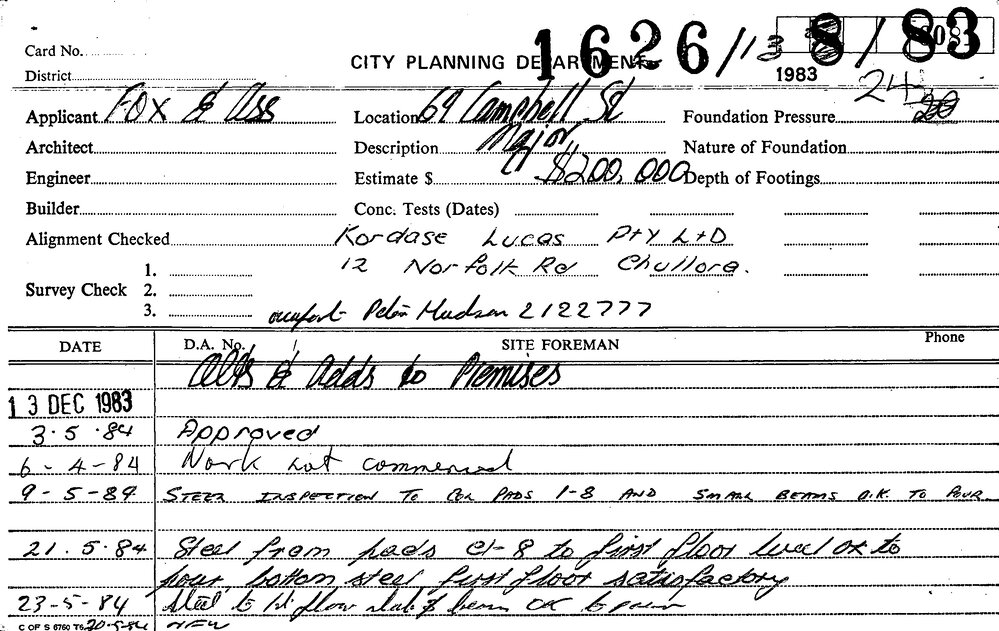 1626/13 8/83
Card No.
CITY PLANNING DEPARTMENT
1983
District
24
20
Applicant Fox & Ass
Location 69 Campbell St
Foundation Pressure
Architect
Description Major
Nature of Foundation
Engineer
Estimate $ $200,000
Depth of Footings
Builder
Conc. Tests (Dates)
Alignment Checked
Kordase Lucas Pty Ltd
1.
12 Norfolk Rd Chullora.
Survey Check 2.
3.
Peter Hudson 2122777
DATE
D.A. No.
SITE FOREMAN
Phone
Alts & Adds to Premises
13 DEC 1983
3.5.84 Approved
6-4-84 Work not commenced
9-5-84 STEEL INSPECTION TO COL PADS 1-8 AND SMALL BEAMS O.K. TO POUR
21.5.84 Steel from pads C1-8 to first floor level ok to
pour, bottom steel first floor satisfactory
23-5-84 Steel to 1st floor slab & beam OK to pour
C OF S 6760 T6